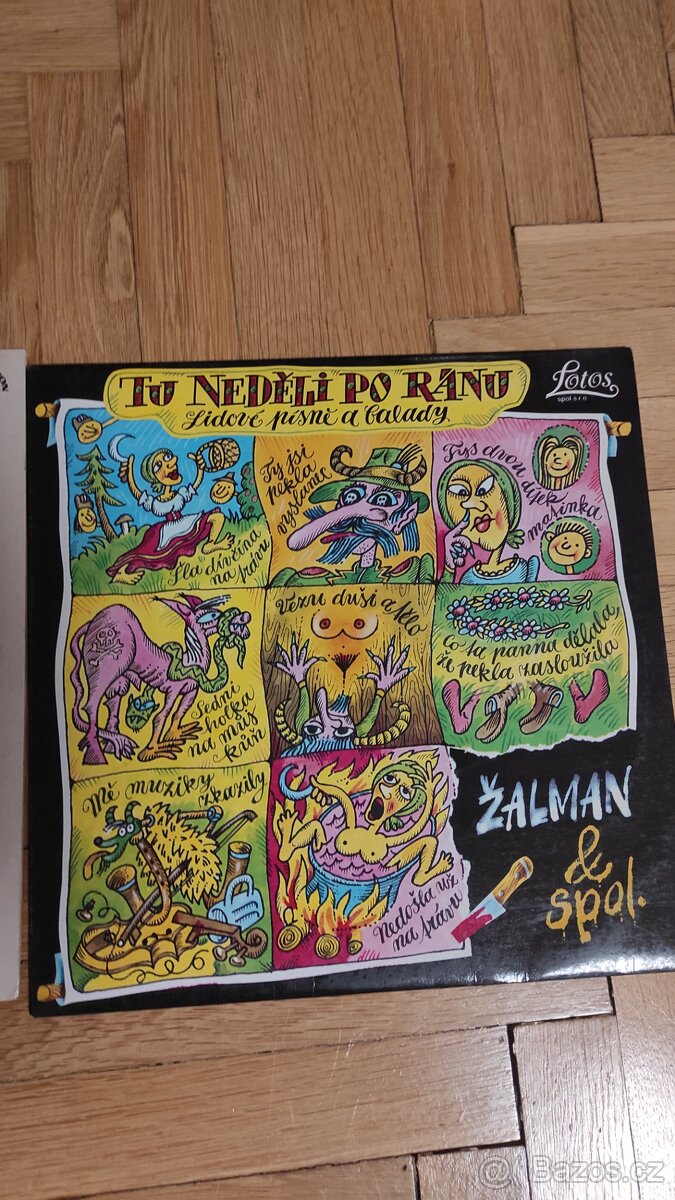 TU NEDĚLI PO RÁNU
Lidové písně a balady
Lotos
spol s r o
Šla divčina
na trávu
Ty jsi
pekla
vyslanec
Tys dvou dítek
matinka
Sedni
holka
na můj
kůň
Vezmu duši a tělo
Co ta panna dělala,
že pekla zasloužila
Mé muziky
zkazily
Nedošla už
na trávu
ŽALMAN
&
spol.
Bazos.cz